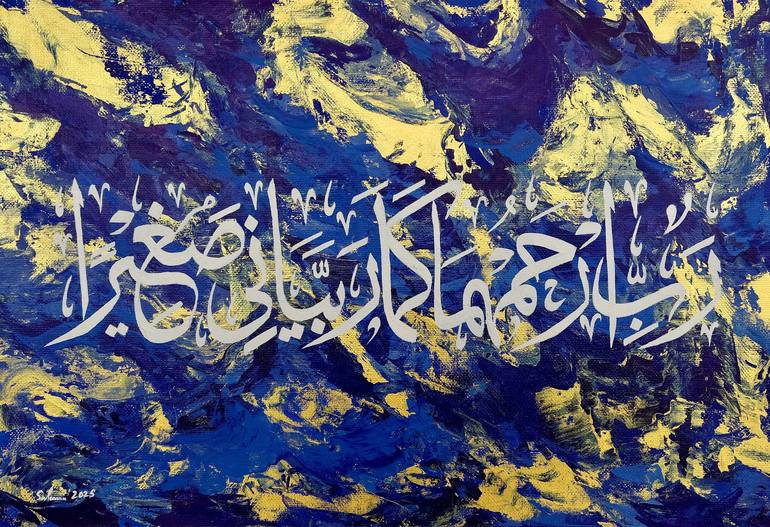 رَبِّ ارْحَمْهُمَا كَمَا رَبَّيَانِي صَغِيرًا
2025